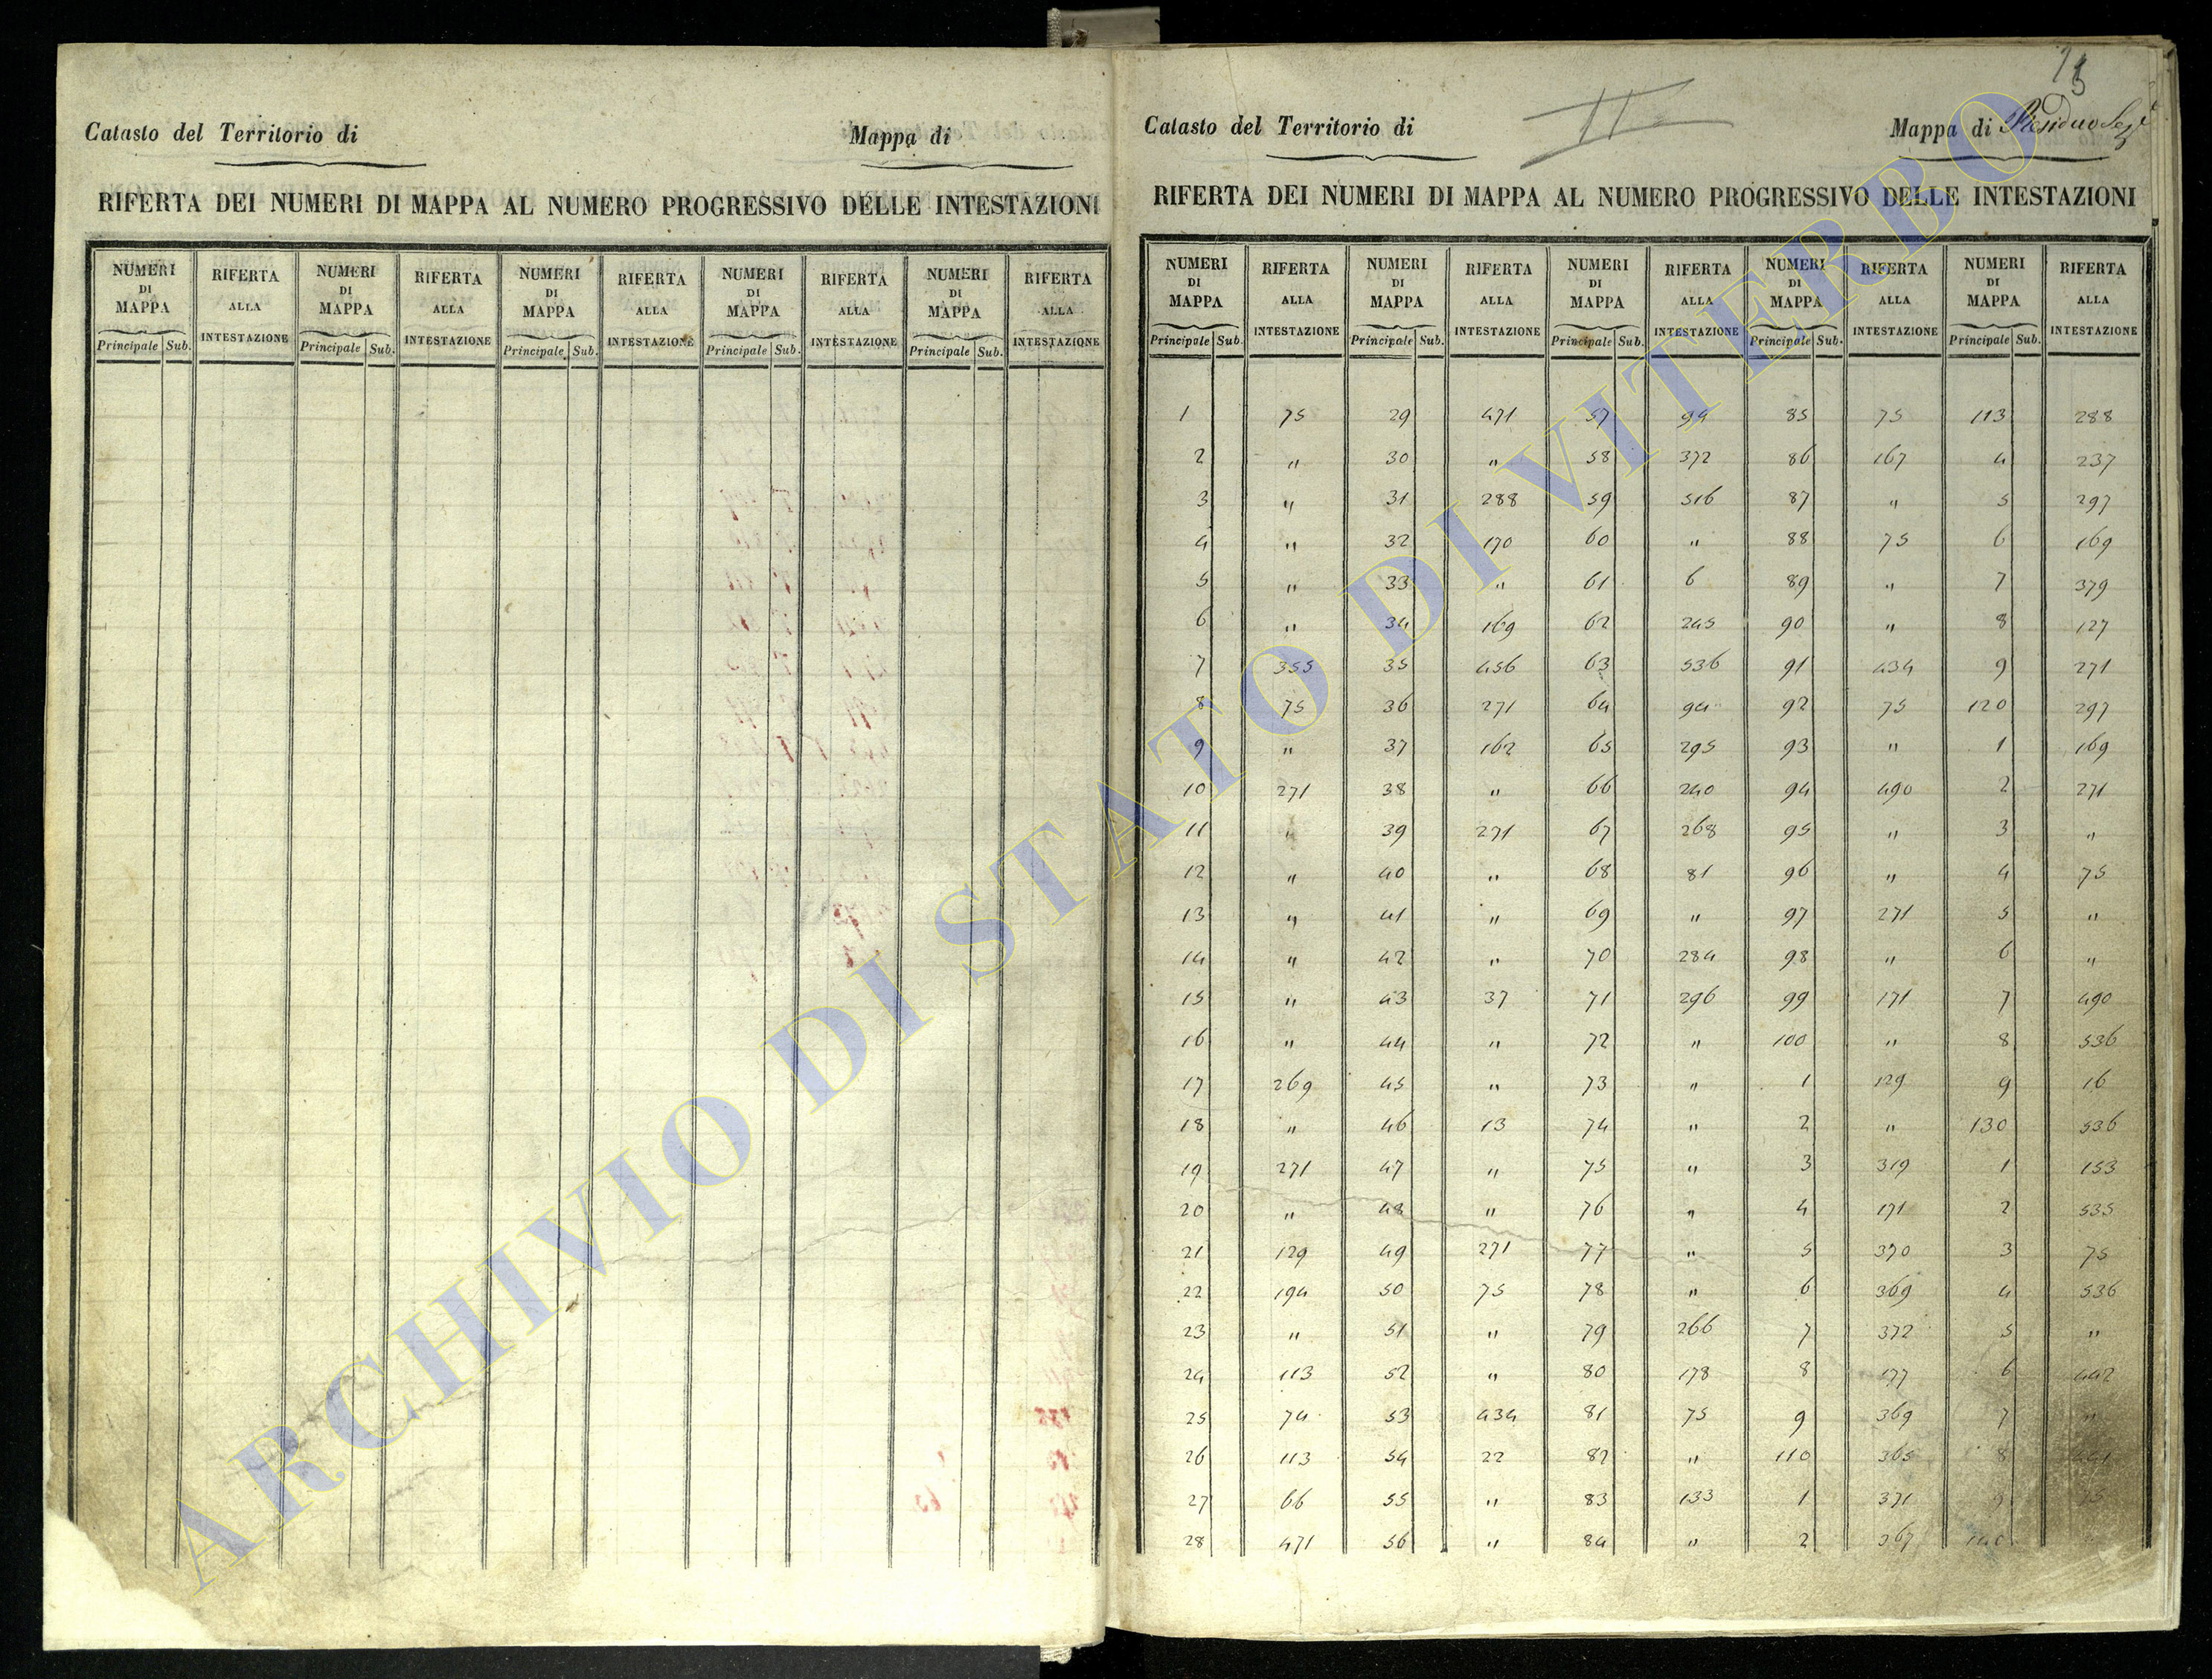 Catasto del Territorio di
Mappa di
RIFERTA DEI NUMERI DI MAPPA AL NUMERO PROGRESSIVO DELLE INTESTAZIONI
NUMERI DI MAPPA RIFERTA ALLA INTESTAZIONE NUMERI DI MAPPA RIFERTA ALLA INTESTAZIONE NUMERI DI MAPPA RIFERTA ALLA INTESTAZIONE NUMERI DI MAPPA RIFERTA ALLA INTESTAZIONE NUMERI DI MAPPA RIFERTA ALLA INTESTAZIONE
Principale Sub. Principale Sub. Principale Sub. Principale Sub. Principale Sub.
Catasto del Territorio di II
Mappa di
RIFERTA DEI NUMERI DI MAPPA AL NUMERO PROGRESSIVO DELLE INTESTAZIONI
NUMERI DI MAPPA RIFERTA ALLA INTESTAZIONE NUMERI DI MAPPA RIFERTA ALLA INTESTAZIONE NUMERI DI MAPPA RIFERTA ALLA INTESTAZIONE NUMERI DI MAPPA RIFERTA ALLA INTESTAZIONE NUMERI DI MAPPA RIFERTA ALLA INTESTAZIONE
Principale Sub. Principale Sub. Principale Sub. Principale Sub. Principale Sub.
1 75 29 471 57 94 85 75 113 288
2 " 30 " 58 372 86 167 4 237
3 " 31 288 59 516 87 " 5 297
4 " 32 170 60 " 88 75 6 169
5 " 33 " 61 6 89 " 7 379
6 " 34 169 62 245 90 " 8 127
7 355 35 456 63 536 91 434 9 271
8 75 36 271 64 94 92 75 120 297
9 " 37 162 65 295 93 " 1 169
10 271 38 " 66 240 94 490 2 271
11 " 39 271 67 268 95 " 3 "
12 " 40 " 68 81 96 " 4 75
13 " 41 " 69 " 97 271 5 "
14 " 42 " 70 284 98 " 6 "
15 " 43 37 71 296 99 171 7 490
16 " 44 " 72 " 100 " 8 536
17 269 45 " 73 " 1 129 9 16
18 " 46 13 74 " 2 " 130 536
19 271 47 " 75 " 3 319 1 153
20 " 48 " 76 " 4 171 2 535
21 129 49 271 77 " 5 370 3 75
22 194 50 75 78 " 6 369 4 536
23 " 51 " 79 266 7 372 5 "
24 113 52 " 80 178 8 177 6 442
25 74 53 434 81 75 9 369 7 "
26 113 54 22 82 " 110 365 8
27 66 55 " 83 133 1 371 9
28 471 56 " 84 " 2 367 140
ARCHIVIO DI STATO DI VITERBO